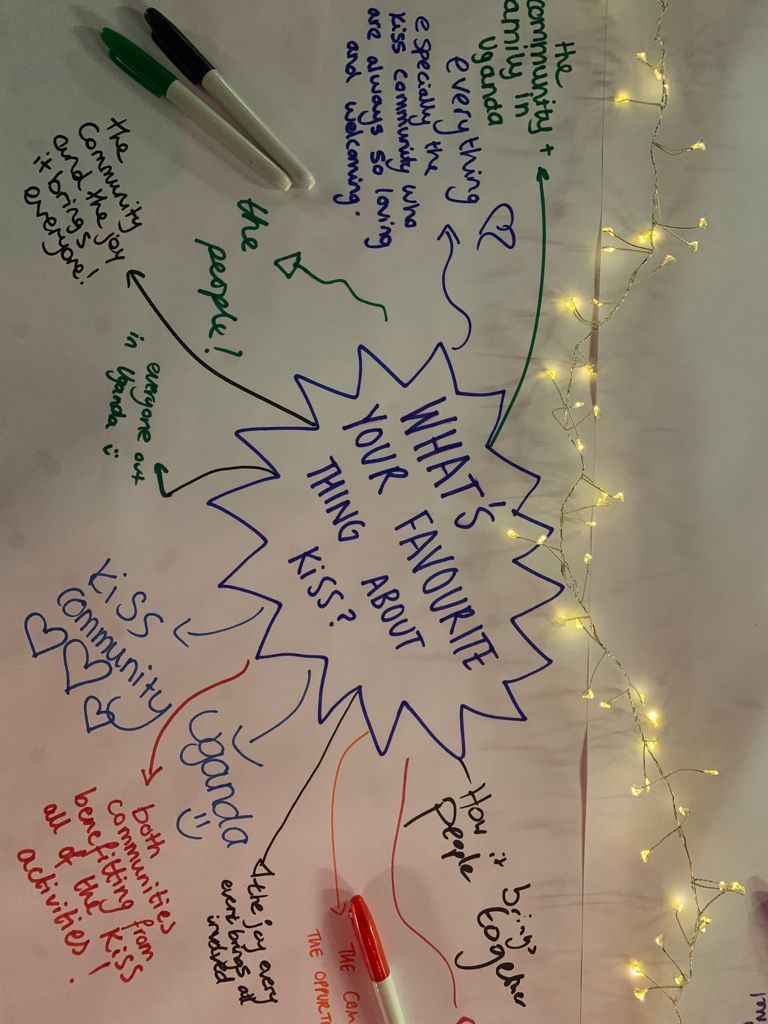 WHAT'S
YOUR FAVOURITE
THING ABOUT
KISS?
the
community +
family in
Uganda
everything
especially the
kiss community who
are always so loving
and welcoming.
the
people!
the
community
and the joy
it brings
everyone!
everyone out
in Uganda :)
KISS
community
Uganda
:)
both
communities
benefitting from
all of the KISS
activities!
the joy every
event brings all
involved
How it brings
people together
THE COM
THE OPPORT